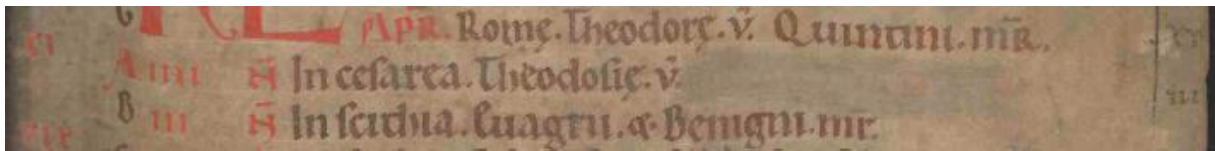 G KL APR̅. Romę. Theodorę. v̅. Quintini. m̅R.
XI A IIII N̅ In cesarea. Theodosię. v̅.
B III N̅ In scithia. Euagrii. & Benigni. mr̅.